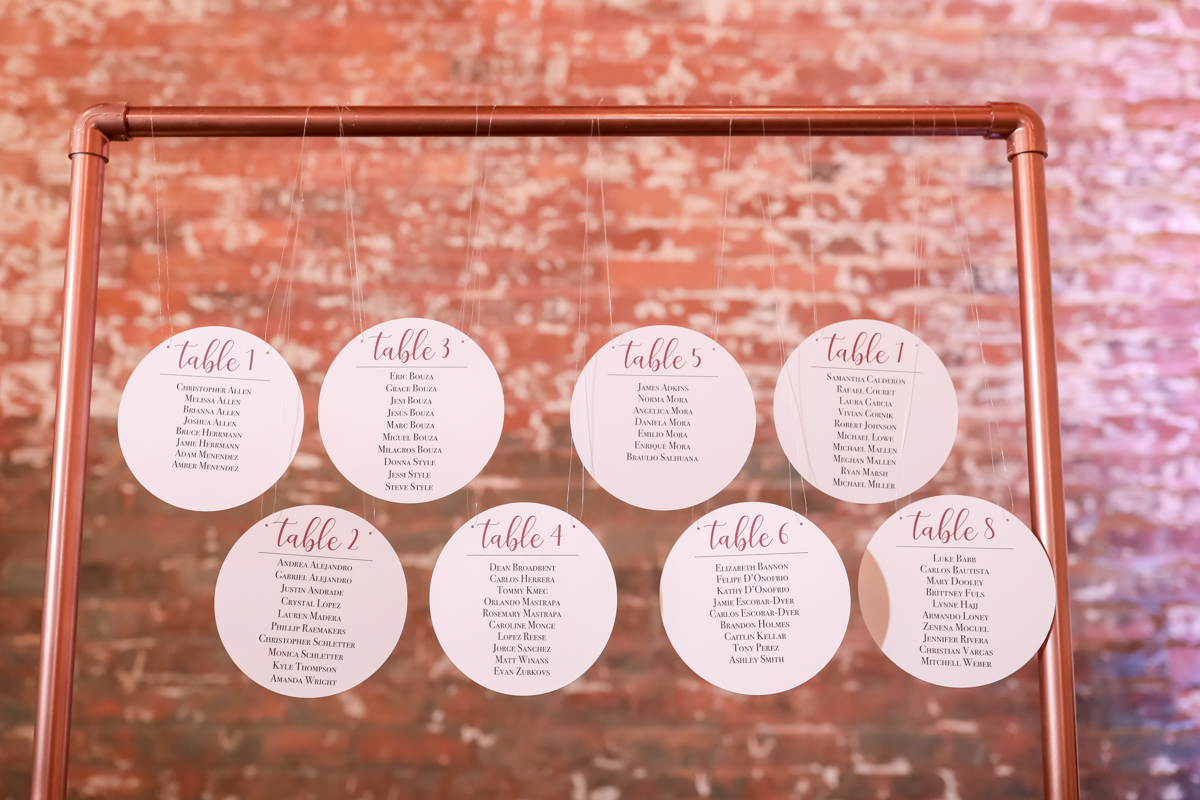 table 1
Christopher Allen
Melissa Allen
Brianna Allen
Joshua Allen
Bruce Herrmann
Jamie Herrmann
Adam Menendez
Amber Menendez
table 3
Eric Bouza
Grace Bouza
Jeni Bouza
Jesus Bouza
Marc Bouza
Miguel Bouza
Milagros Bouza
Donna Style
Jessi Style
Steve Style
table 5
James Adkins
Norma Mora
Angelica Mora
Daniela Mora
Emilio Mora
Enrique Mora
Braulio Salhuana
table 7
Samantha Calderon
Rafael Couret
Laura Garcia
Vivian Gornik
Robert Johnson
Michael Lowe
Michael Mallen
Meghan Mallen
Ryan Marsh
Michael Miller
table 2
Andrea Alejandro
Gabriel Alejandro
Justin Andrade
Crystal Lopez
Lauren Madera
Phillip Raemakers
Christopher Schletter
Monica Schletter
Kyle Thompson
Amanda Wright
table 4
Dean Broadbent
Carlos Herrera
Tommy Kmec
Orlando Mastrapa
Rosemary Mastrapa
Caroline Monge
Lopez Reese
Jorge Sanchez
Matt Winans
Evan Zubkovs
table 6
Elizabeth Bannon
Felipe D'Onofrio
Kathy D'Onofrio
Jamie Escobar-Dyer
Carlos Escobar-Dyer
Brandon Holmes
Caitlin Kellar
Tony Perez
Ashley Smith
table 8
Luke Babb
Carlos Bautista
Mary Dooley
Brittney Fuls
Lynne Hajj
Armando Loney
Zenena Moguel
Jennifer Rivera
Christian Vargas
Mitchell Weber